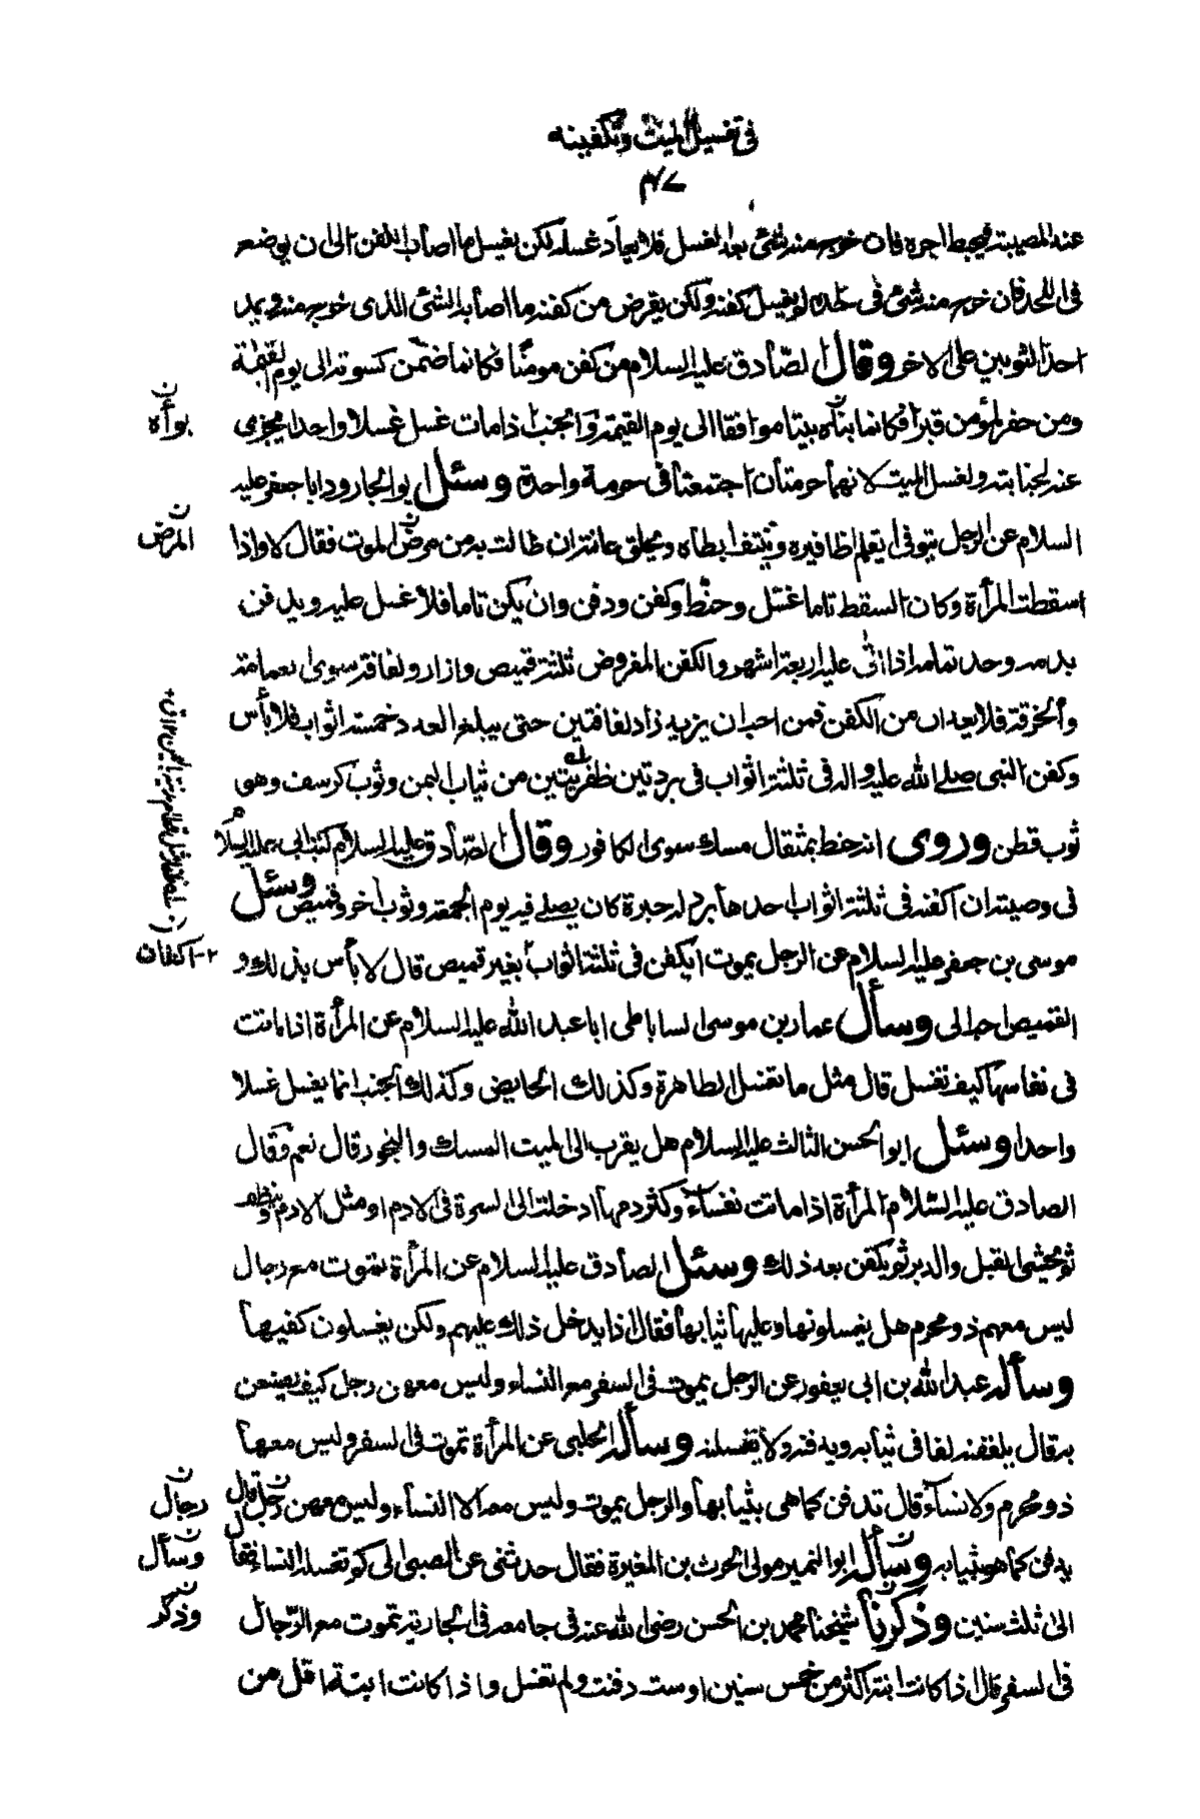 فى تغسيل الميت وتكفينه
٤٧
عند المصيبة فيحبط اجره فان خرج منه شئ بعد الغسل فلا يعاد غسله لكن يغسل ما اصاب الكفن الى ان يوضع
فى اللحد فان خرج منه شئ فى لحده لم يغسل كفنه ولكن يقرض من كفنه ما اصابه الشئ الذى خرج منه ويمد
احد الثوبين على الاخر وقال الصادق عليه السلام من كفن مومنا فكانما ضمن كسوته الى يوم القيمة
ومن حفر لمؤمن قبرا فكانما بناه بيتا موافقا الى يوم القيمة والجنب اذا مات غسل غسلا واحدا يجزى
بوأه ن
عنه لجنابته ولغسل الميت لانهما حرمتان اجتمعتا فى حرمة واحدة وسئل ابو الجارود ابا جعفر عليه
السلام عن الرجل يتوفى ايقلم اظافيره وينتف ابطاه ويحلق عانته ان طالت به من مرض الموت فقال لا واذا
المرض ن
اسقطت المرأة وكان السقط تاما غسل وحنط وكفن ودفن وان يكن تاما فلا غسل عليه ويدفن
بدمه وحد تمامه اذا اتى عليه اربعة اشهر والكفن المفروض ثلثة قميص وازار ولفافة سوى العمامة
والخرقة فلا يعدان من الكفن فمن احب ان يزيد زاد لفافتين حتى يبلغ العدد خمسة اثواب فلا بأس
وكفن النبى صلى الله عليه واله فى ثلثة اثواب فى بردتين ظفريتين من ثياب اليمن وثوب كرسف وهى
ثوب قطن وروى انه حنط بمثقال مسك سوى الكافور وقال الصادق عليه السلام كتب ابى عليه السلام
فى وصيته ان اكفنه فى ثلثة اثواب احدها برد له حبرة كان يصلى فيه يوم الجمعة وثوب اخر وقميص وسئل
موسى بن جعفر عليه السلام عن الرجل يموت ايكفن فى ثلثة اثواب بغير قميص قال لا بأس بذلك و
٢-اكفان
القميص احب الى وسأل عمار بن موسى الساباطى ابا عبد الله عليه السلام عن المرأة اذا ماتت
فى نفاسها كيف تغسل قال مثل ما تغسل الطاهرة وكذلك الحايض وكذلك الجنب انما يغسل غسلا
واحدا وسئل ابو الحسن الثالث عليه السلام هل يقرب الى الميت المسك والبخور قال نعم وقال
الصادق عليه السلام المرأة اذا ماتت نفساء وكثر دمها ادخلت الى السرة فى الادم او مثل الادم وتنظف
ثم يحشى القبل والدبر ثم يكفن بعد ذلك وسئل الصادق عليه السلام عن المرأة تموت مع رجال
ليس معهم ذو محرم هل يغسلونها وعليها ثيابها فقال اذا يدخل ذلك عليهم ولكن يغسلون كفيها
وسأله عبد الله بن ابى يعفور عن الرجل يموت فى السفر مع النساء وليس معهن رجل كيف يصنعن
به قال يلففنه لفا فى ثيابه ويدفنه ولا يغسلنه وسأله الحلبى عن المرأة تموت فى السفر وليس معها
ذو محرم ولا نساء قال تدفن كما هى بثيابها والرجل يموت وليس معه الا النساء وليس معهن رجل قال
رجال ن
يدفن كما هو بثيابه وسأله ابو النمير مولى الحرث بن المغيرة فقال حدثنى عن الصبى الى كم تغسله النساء فقال
وسأل ن
الى ثلث سنين وذكرنا شيخنا محمد بن الحسن رضى الله عنه فى جامعه فى الجارية تموت مع الرجال
وذكر ن
فى السفر قال اذا كانت ابنة اكثر من خمس سنين او ست دفنت ولم تغسل واذا كانت ابنة اقل من